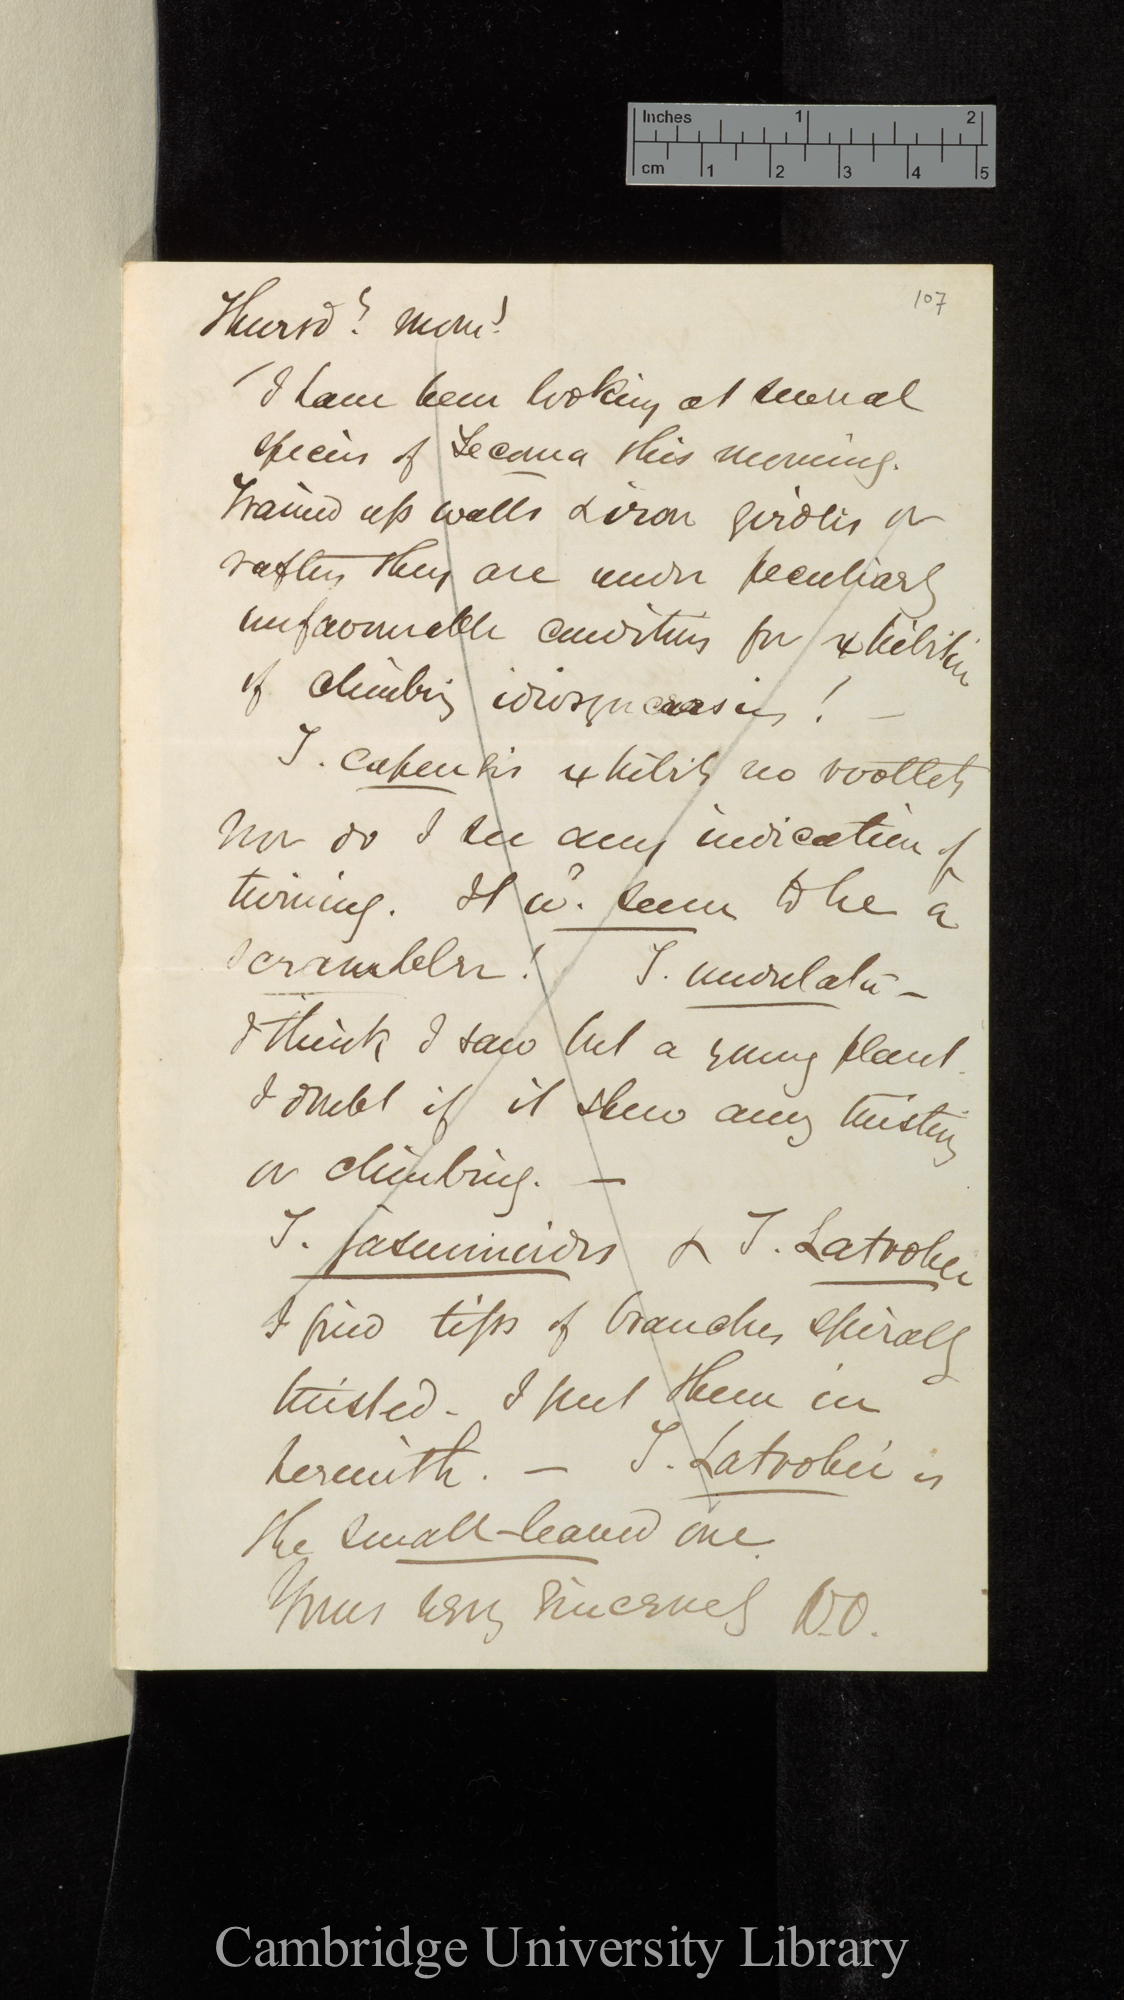 Inches 1 2
cm 1 2 3 4 5
107
Thursdy. morng.
I have been looking at several
species of Tecoma this morning.
Trained up walls & iron girders or
rafters they are under peculiarly
unfavourable conditions for exhibition
of climbing idiosyncrasies! —
T. capensis exhibits no rootlets
nor do I see any indication of
twining. It wd. seem to be a
scrambler! T. undulata —
I think I saw but a young plant.
I doubt if it shew any twisting
or climbing. —
T. jasminoides & T. Latrobei
I find tips of branches spirally
twisted. I put them in
herewith. — T. Latrobei is
the small-leaved one.
Yours very sincerely D.O.
Cambridge University Library